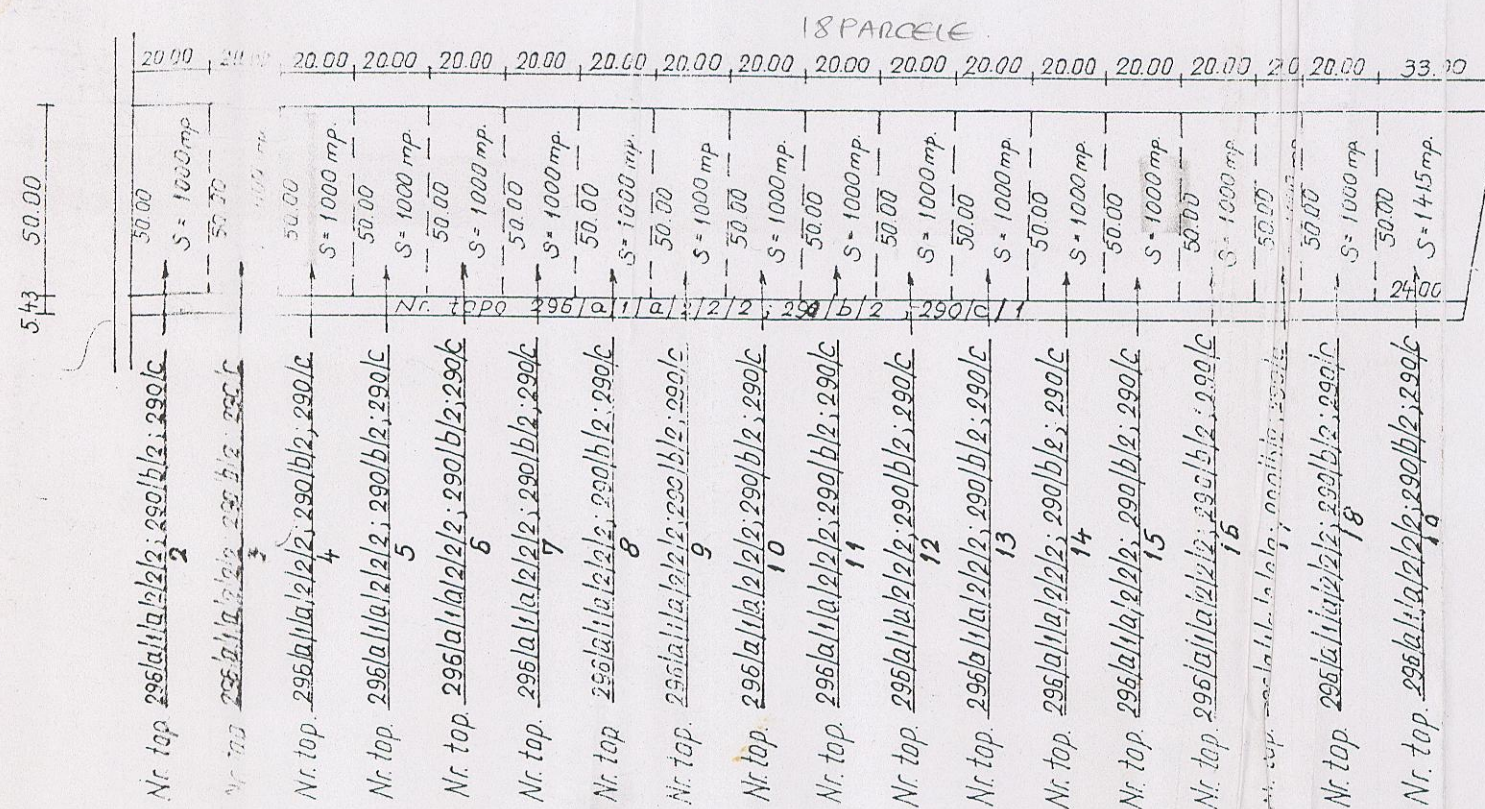 18 PARCELE
20.00 20.00 20.00 20.00 20.00 20.00 20.00 20.00 20.00 20.00 20.00 20.00 20.00 20.00 20.0 20.00 33.00
5,43 50.00
50.00 S = 1000 mp
50.00
50.00 S = 1000 mp.
50.00 S = 1000 mp.
50.00 S = 1000 mp.
50.00 S = 1000 mp.
50.00 S = 1000 mp.
50.00 S = 1000 mp
50.00 S = 1000 mp.
50.00 S = 1000 mp.
50.00 S = 1000 mp.
50.00 S = 1000 mp.
50.00 S = 1000 mp.
50.00 S = 1000 mp.
50.00 S = 1000 mp.
50.00
50.00 S = 1000 mp
50.00 S = 1415 mp.
24.00
Nr. topo 296/a/1/a/2/2/2 ; 290/b/2 ; 290/c/1
Nr. top. 296/a/1/a/2/2/2; 290/b/2; 290/c
2
296/a/1/a/2/2/2 290/b/2 290/c
3
Nr. top. 296/a/1/a/2/2/2; 290/b/2; 290/c
4
Nr. top. 296/a/1/a/2/2/2; 290/b/2; 290/c
5
Nr. top. 296/a/1/a/2/2/2; 290/b/2; 290/c
6
Nr. top. 296/a/1/a/2/2/2; 290/b/2; 290/c
7
Nr. top. 296/a/1/a/2/2/2; 290/b/2; 290/c
8
Nr. top. 296/a/1/a/2/2/2; 290/b/2; 290/c
9
Nr. top. 296/a/1/a/2/2/2; 290/b/2; 290/c
10
Nr. top. 296/a/1/a/2/2/2; 290/b/2; 290/c
11
Nr. top. 296/a/1/a/2/2/2; 290/b/2; 290/c
12
Nr. top. 296/a/1/a/2/2/2; 290/b/2; 290/c
13
Nr. top. 296/a/1/a/2/2/2; 290/b/2; 290/c
14
Nr. top. 296/a/1/a/2/2/2; 290/b/2; 290/c
15
Nr. top. 296/a/1/a/2/2/2; 290/b/2; 290/c
16
Nr. top. 296/a/1/a/2/2/2; 290/b/2; 290/c
18
Nr. top. 296/a/1/a/2/2/2; 290/b/2; 290/c
19